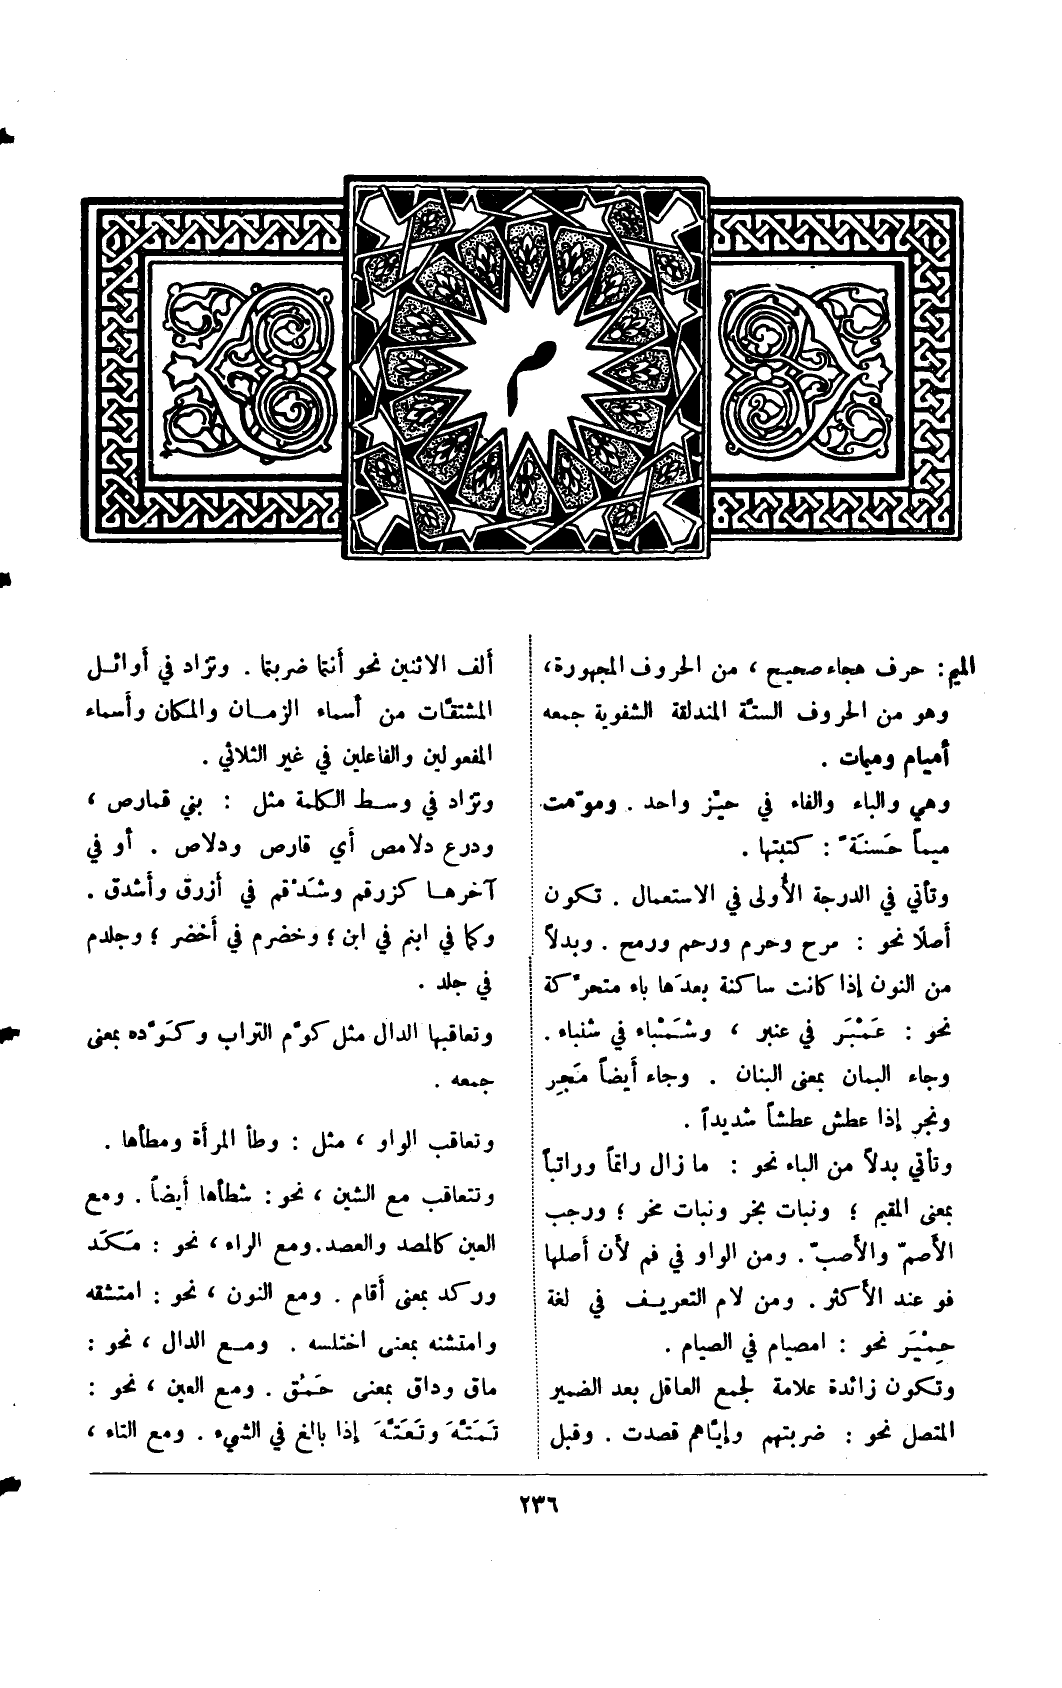 م
الميم : حرف هجاء صحيح ، من الحروف المجهورة،
وهو من الحروف الستّة المذلقة الشفوية جمعه
أميام وميات .
وهي والباء والفاء في حيّز واحد . وموّمت
ميماً حَسنَةً : كتبتها .
وتأتي في الدرجة الأُولى في الاستعمال . تكون
أصلًا نحو : مرح وحرم ورحم ورمح . وبدلاً
من النون إذا كانت ساكنة بعدَها باء متحرّكة
نحو : عَمْبَر في عنبر ، وشَمْباء في شنباء .
وجاء البمان بمعنى البنان . وجاء أيضاً مَجِر
ونجر إذا عطش عطشاً شديداً .
وتأتي بدلاً من الباء نحو : ما زال راتماً وراتباً
بمعنى المقيم ؛ ونبات بخر ونبات مخر ؛ ورجب
الأصمّ والأصبّ . ومن الواو في فم لأن أصلها
فو عند الأكثر . ومن لام التعريف في لغة
حِمْيَر نحو : امصيام في الصيام .
وتكون زائدة علامة لجمع العاقل بعد الضمير
المتصل نحو : ضربتهم وإيّاهم قصدت . وقبل
ألف الاثنين نحو أنتما ضربتما . وتزاد في أوائل
المشتقّات من أسماء الزمان والمكان وأسماء
المفعولين والفاعلين في غير الثلاثي .
وتزاد في وسط الكلمة مثل : بني قمارص ،
ودرع دلامص أي قارص ودلاص . أو في
آخرها كزرقم وشَدْقم في أزرق وأشدق .
وكما في ابنم في ابن ؛ وخضرم في أخضر ؛ وجلدم
في جلد .
وتعاقبها الدال مثل كوّم التراب وكَوّده بمعنى
جمعه .
وتعاقب الواو ، مثل : وطأ المرأة ومطأها .
وتتعاقب مع الشين ، نحو : شطأها أيضاً . ومع
العين كالمصد والعصد . ومع الراء ، نحو : مَكَد
وركد بمعنى أقام . ومع النون ، نحو : امتشقه
وامتشنه بمعنى اختلسه . ومع الدال ، نحو :
ماق وداق بمعنى حَمُق . ومع العين ، نحو :
تَمَتَّهَ وتَعَتَّهَ إذا بالغ في الشيء . ومع التاء ،
٢٣٦